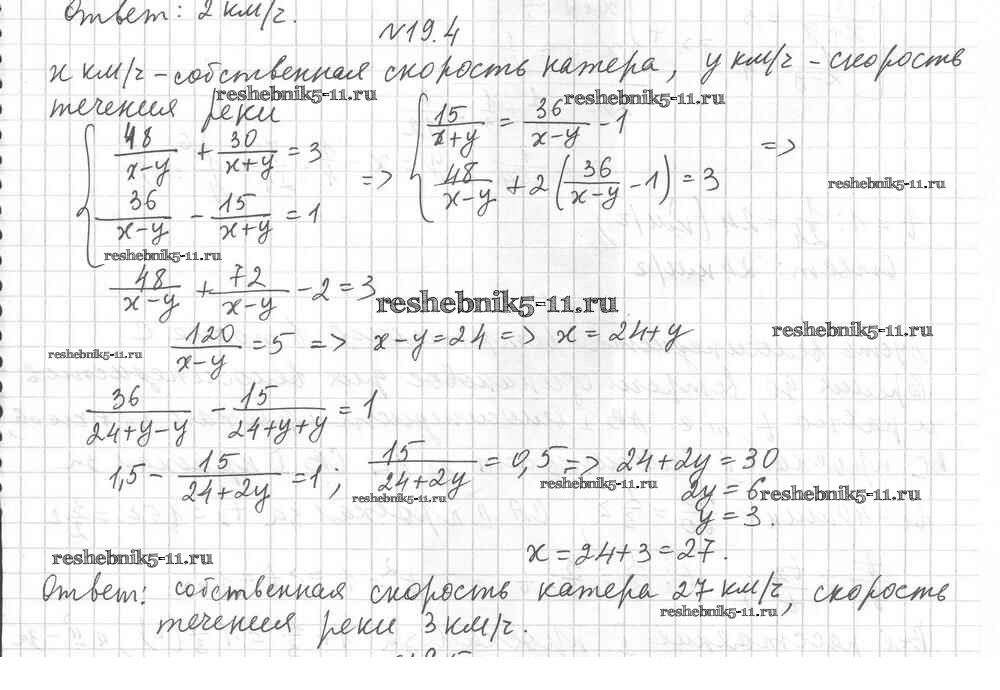 Ответ: 2 км/ч.
№19.4
x км/ч – собственная скорость катера, y км/ч – скорость
течения реки
reshebnik5-11.ru
reshebnik5-11.ru
{ 48/(x-y) + 30/(x+y) = 3
36/(x-y) - 15/(x+y) = 1
=> { 15/(x+y) = 36/(x-y) - 1
48/(x-y) + 2(36/(x-y) - 1) = 3
=>
reshebnik5-11.ru
reshebnik5-11.ru
48/(x-y) + 72/(x-y) - 2 = 3
reshebnik5-11.ru
120/(x-y) = 5 => x-y=24 => x=24+y
reshebnik5-11.ru
reshebnik5-11.ru
36/(24+y-y) - 15/(24+y+y) = 1
1,5 - 15/(24+2y) = 1; 15/(24+2y) = 0,5 => 24+2y=30
reshebnik5-11.ru
reshebnik5-11.ru
2y=6
reshebnik5-11.ru
y=3.
x=24+3=27.
reshebnik5-11.ru
Ответ: собственная скорость катера 27 км/ч, скорость
reshebnik5-11.ru
течения реки 3 км/ч.